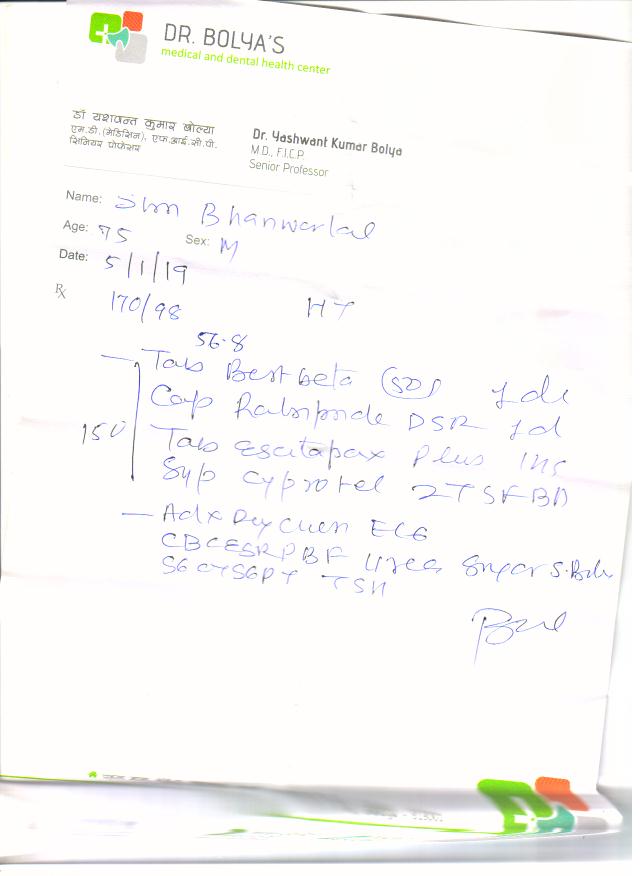 DR. BOLYA'S
medical and dental health center
डॉ यशवन्त कुमार बोल्या
एम.डी.(मेडिसिन), एफ.आई.सी.पी.
सिनियर प्रोफेसर
Dr. Yashwant Kumar Bolya
M.D., F.I.C.P.
Senior Professor
Name: Bhanwarlal
Age: 75 Sex: M
Date: 5/1/19
Rx
170/98 HT
56.8
Tab Bestbeta (50)
Cap DSR 1d
150
Tab Escitapax Plus
Syp Cyprotel 2TSF BD
Adx ECG
CBC ESR PBF Urea Sugar
SGOT SGPT TSH